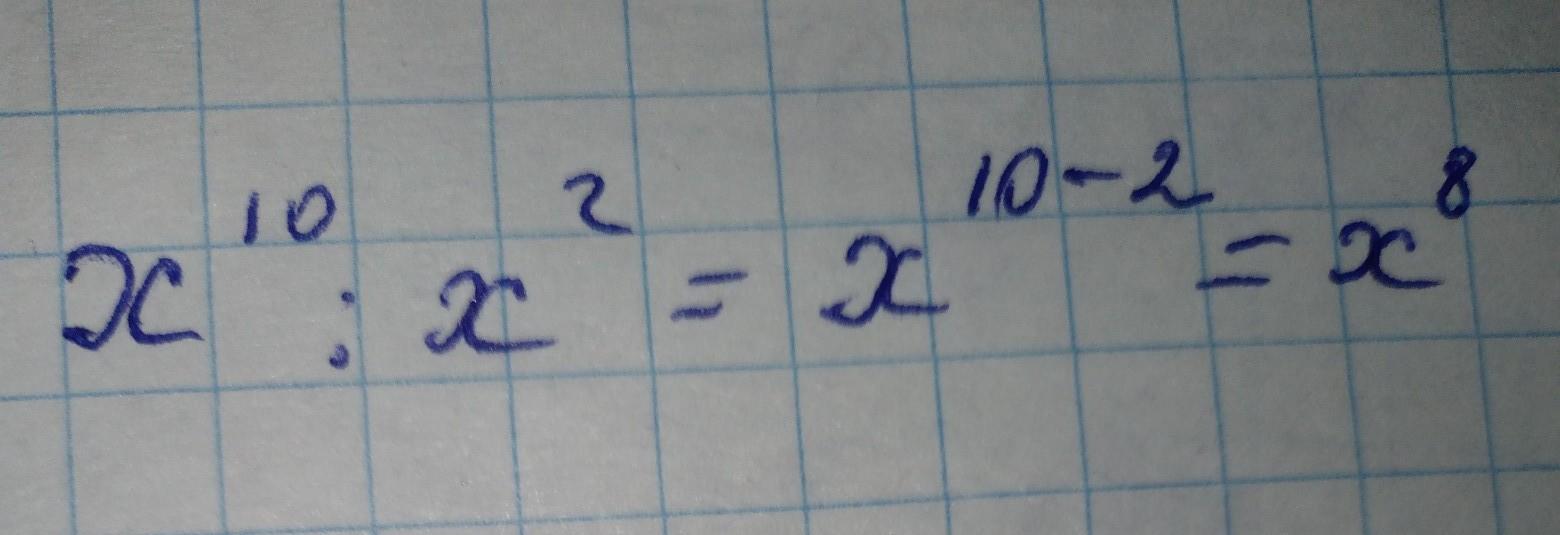 x¹⁰ : x² = x¹⁰⁻² = x⁸